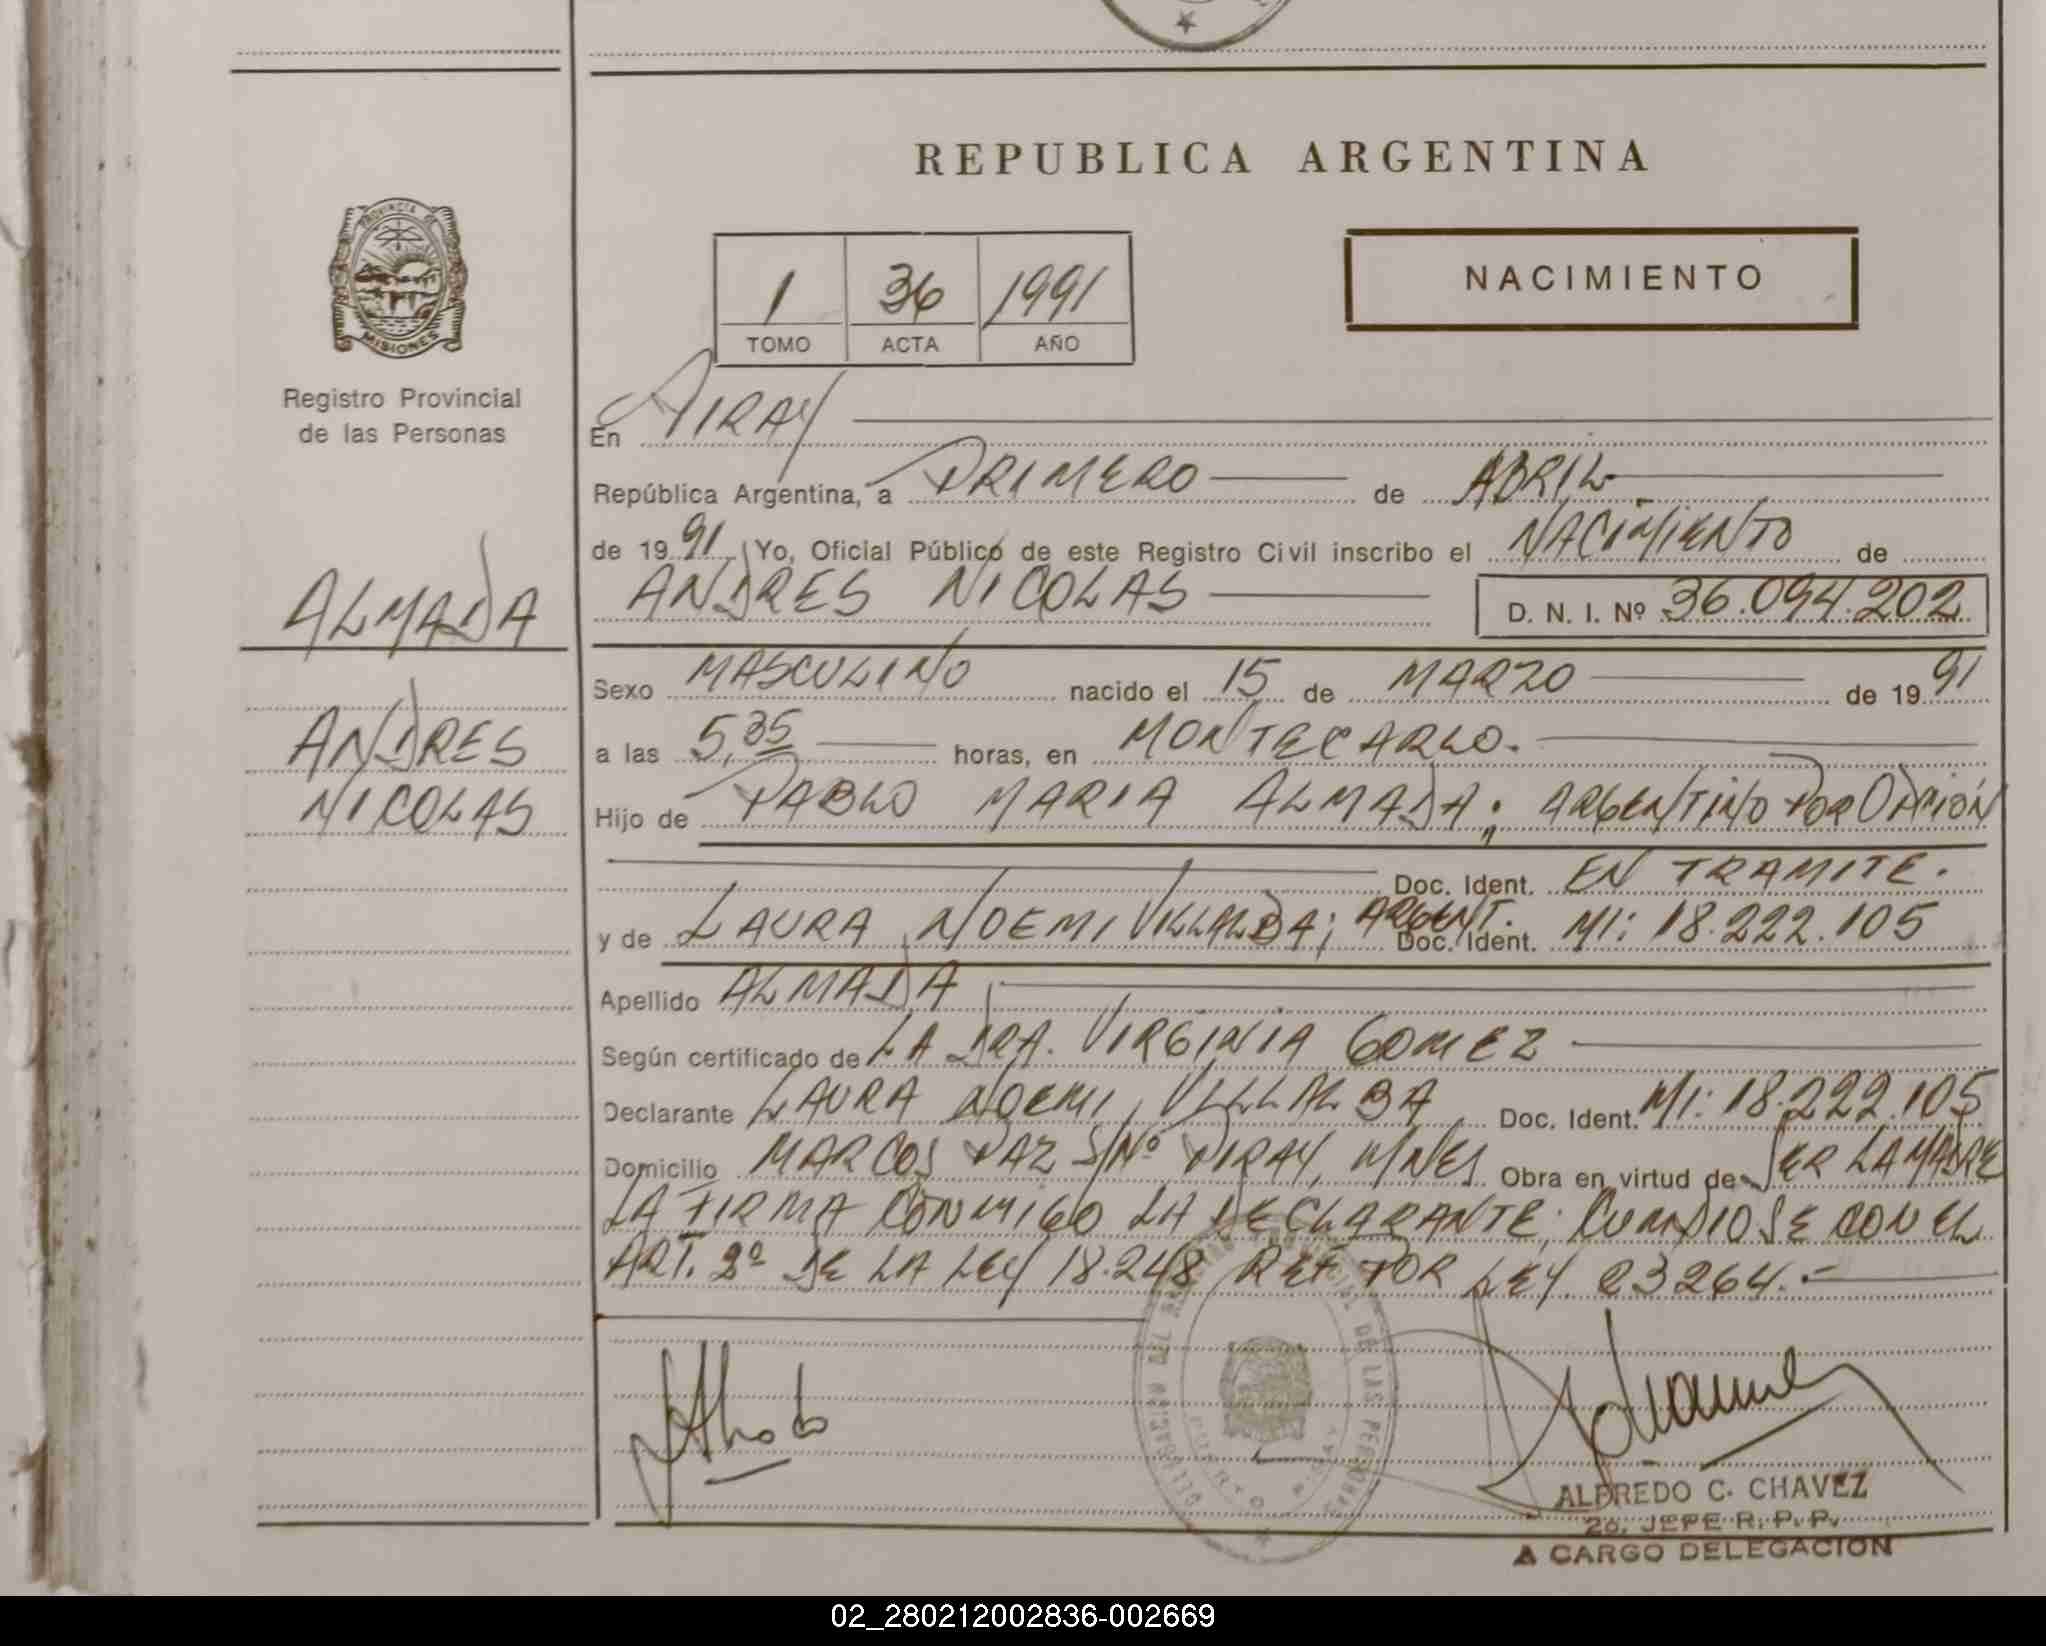 REPUBLICA ARGENTINA
PROVINCIA DE
MISIONES
Registro Provincial
de las Personas
1 36 1991
TOMO ACTA AÑO
NACIMIENTO
En PIRAY
República Argentina, a PRIMERO de ABRIL
de 1991 Yo, Oficial Público de este Registro Civil inscribo el NACIMIENTO de
ANDRES NICOLAS D. N. I. Nº 36.094.202
ALMADA
ANDRES
NICOLAS
Sexo MASCULINO nacido el 15 de MARZO de 1991
a las 5,35 horas, en MONTECARLO.
Hijo de PABLO MARIA ALMADA; ARGENTINO POR OPCIÓN
Doc. Ident. EN TRAMITE.
y de LAURA NOEMI VILLALBA; ARGENT. Doc. Ident. MI: 18.222.105
Apellido ALMADA
Según certificado de LA DRA. VIRGINIA GOMEZ
Declarante LAURA NOEMI VILLALBA Doc. Ident. MI: 18.222.105
Domicilio MARCOS PAZ S/Nº PIRAY, MNES Obra en virtud de SER LA MADRE
LA FIRMA CONMIGO LA DECLARANTE; CUMPLIOSE CON EL
ART. 2º DE LA LEY 18.248 REF POR LEY 23264.-
DE LAS PERSONAS
PUERTO PIRAY
ALFREDO C. CHAVEZ
2o. JEFE R. P. P.
A CARGO DELEGACION
02_280212002836-002669